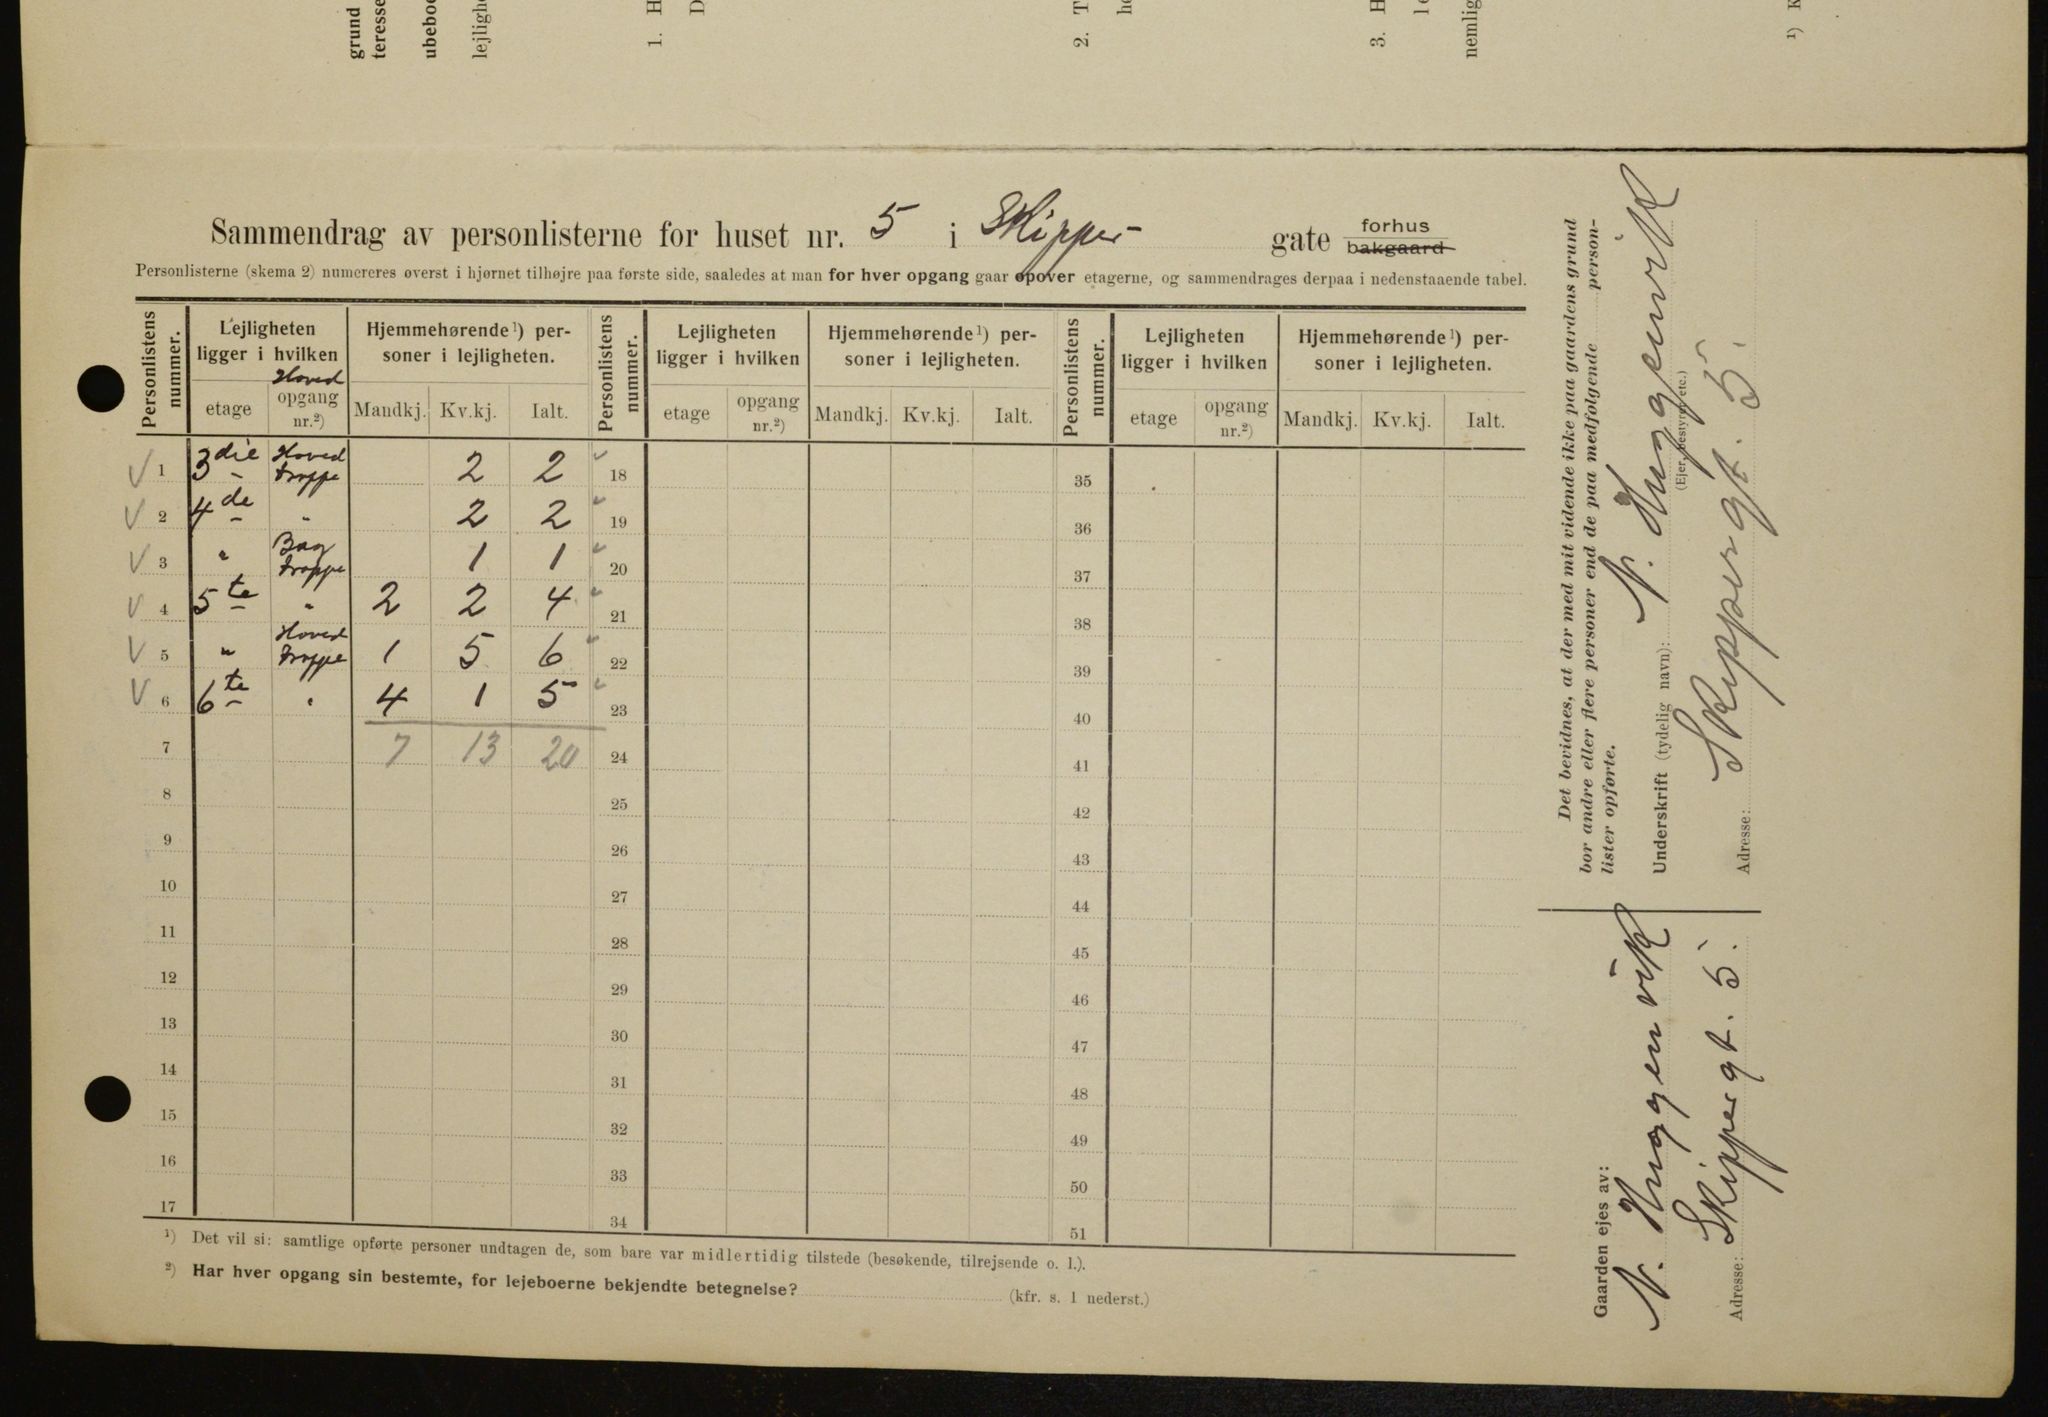 grund
teresse
ubeboe
lejligh
1. H
D
2. T
he
3. H
le
nemlig
¹) K
Sammendrag av personlisterne for huset nr. 5 i Skipper gate forhus bakgaard
Personlisterne (skema 2) numereres øverst i hjørnet tilhøjre paa første side, saaledes at man for hver opgang gaar opover etagerne, og sammendrages derpaa i nedenstaaende tabel.
Personlistens nummer. Lejligheten ligger i hvilken Hjemmehørende¹) personer i lejligheten. Personlistens nummer. Lejligheten ligger i hvilken Hjemmehørende¹) personer i lejligheten. Personlistens nummer. Lejligheten ligger i hvilken Hjemmehørende¹) personer i lejligheten.
Hoved
etage opgang nr.²) Mandkj. Kv.kj. Ialt. etage opgang nr.²) Mandkj. Kv.kj. Ialt. etage opgang nr.²) Mandkj. Kv.kj. Ialt.
1 3die Hoved trappe 2 2 18 35
2 4de " 2 2 19 36
3 " Bag trappe 1 1 20 37
4 5te " 2 2 4 21 38
5 " Hoved trappe 1 5 6 22 39
6 6te " 4 1 5 23 40
7 7 13 20 24 41
8 25 42
9 26 43
10 27 44
11 28 45
12 29 46
13 30 47
14 31 48
15 32 49
16 33 50
17 34 51
¹) Det vil si: samtlige opførte personer undtagen de, som bare var midlertidig tilstede (besøkende, tilrejsende o. l.).
²) Har hver opgang sin bestemte, for lejeboerne bekjendte betegnelse? (kfr. s. 1 nederst.)
Det bevidnes, at der med mit vidende ikke paa gaardens grund
bor andre eller flere personer end de paa medfølgende person-
lister opførte.
Underskrift (tydelig navn): N. Huggenvik
(Ejer, bestyrer etc.)
Adresse: Skippergt. 5.
Gaarden ejes av:
N. Huggenvik
Adresse: Skippergt. 5.